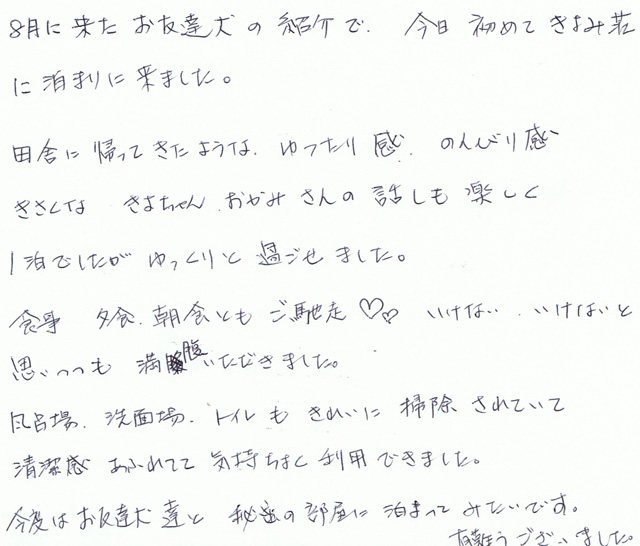 8月に来たお友達犬の紹介で、今日初めてきよみ荘
に泊まりに来ました。
田舎に帰ってきたような、ゆったり感、のんびり感
きさくな きよちゃん、おかみさんの話しも楽しく
1泊でしたがゆっくりと過ごせました。
食事 夕食、朝食ともご馳走♡♡ いけない、いけないと
思いつつも満腹いただきました。
風呂場、洗面場、トイレもきれいに掃除されていて
清潔感あふれてて気持ちよく利用できました。
今度はお友達犬達と秘密の部屋に泊まってみたいです。
有難うございました。